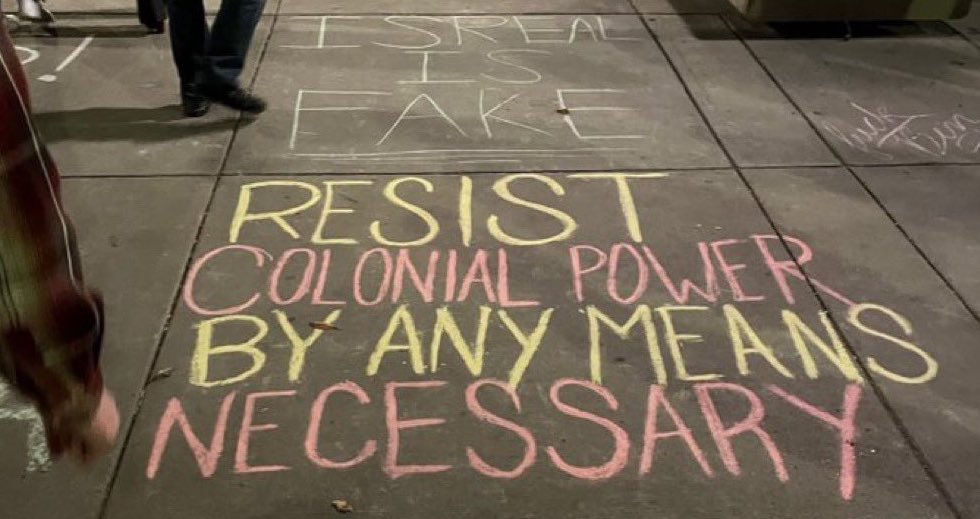 ISREAL
IS
FAKE
RESIST
COLONIAL POWER
BY ANY MEANS
NECESSARY